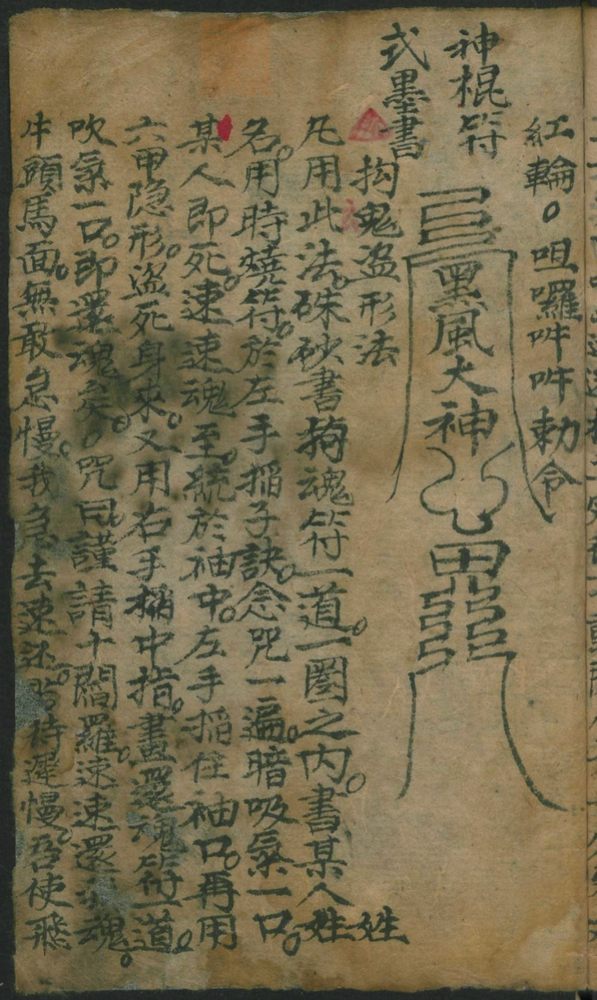 紅輪。呾囉吽吽勅令
神棍符
式墨書
黑風大神
拘鬼盗形法
凡用此法。硃砂書拘魂符一道。一圈之内。書某人姓
姓
名。用時燒符。於左手搯子訣。念咒一遍。暗吸氣一口。
某人即死。速速魂至。統於袖中。左手搯住袖口。再用
六甲隐形。盗死身來。又用右手搯中指。畫還魂符一道。
吹氣一口。即還魂矣。咒曰。謹請十閻羅。速速還魂。
牛頭馬面。無敢怠慢。我急去速还。待遲慢。吾使飛